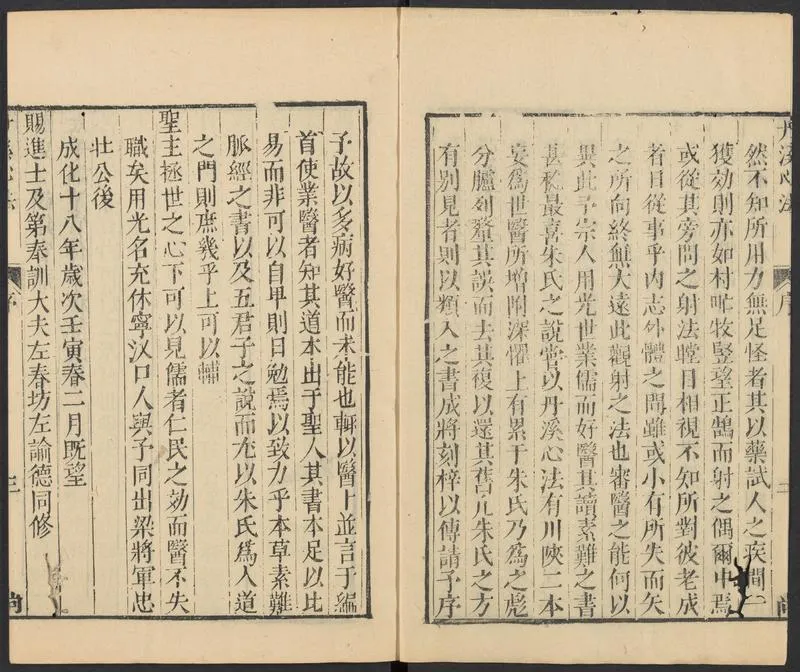 丹溪心法 序
然不知所用力無足怪者其以藥試人之疾間一
獲効則亦如村氓牧豎望正鵠而射之偶爾中焉
或從其旁問之射法瞠目相視不知所對彼老成
者日從事乎内志外體之間雖或小有所失而矢
之所向終無大遠此觀射之法也審醫之能何以
異此予宗人用光世業儒而好醫其讀素難之書
甚稔最喜朱氏之說嘗以丹溪心法有川陝二本
妄爲世醫所增附深懼上有累于朱氏乃爲之彪
分臚列釐其誤而去其復以還其舊凡朱氏之方
有別見者則以類入之書成將刻梓以傳請予序
予故以多病好醫而未能也輒以醫卜並言于編
首使業醫者知其道本出于聖人其書本足以比
易而非可以自卑則日勉焉以致力乎本草素難
脉經之書以及五君子之說而尤以朱氏爲入道
之門則庶幾乎上可以輔
聖主拯世之心下可以見儒者仁民之効而醫不失
職矣用光名充休寧汊口人與予同出梁將軍忠
壯公後
成化十八年歲次壬寅春二月旣望
賜進士及第奉訓大夫左春坊左諭德同修
序